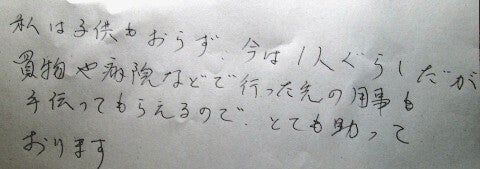 私は子供もおらず、今は1人ぐらしだが
買物や病院などで行った先の用事も
手伝ってもらえるので、とても助って
おります